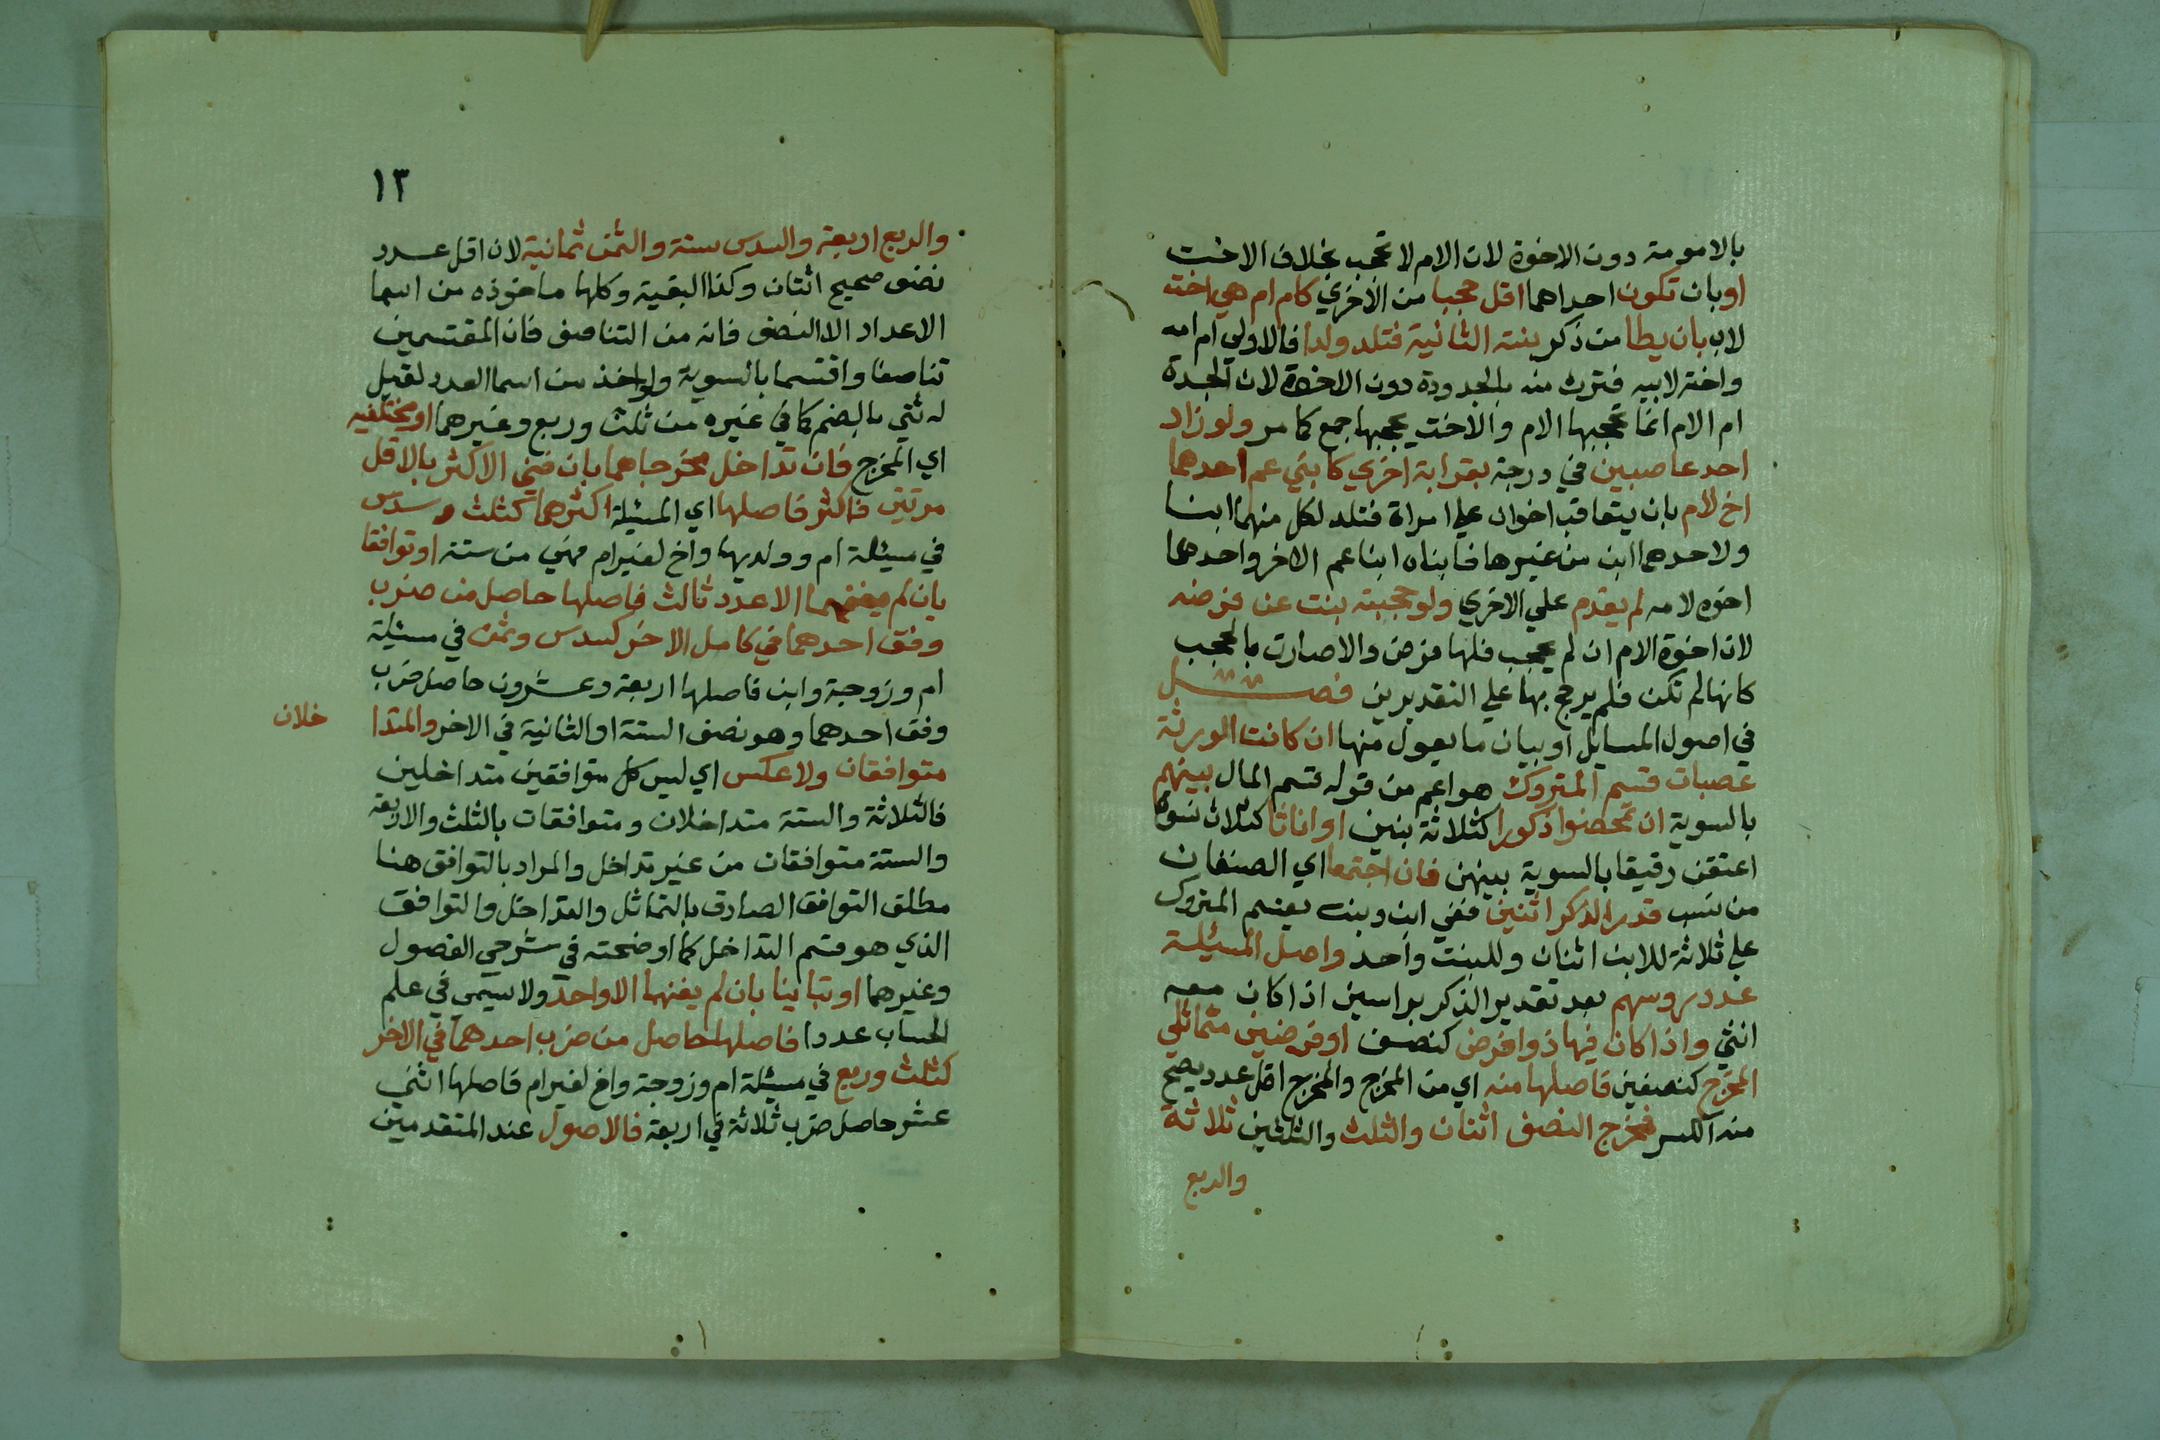 بالامومة دون الاخوة لان الام لا تحجب بخلاف الاخت
او بان تكون احداهما اقل حجبا من الاخري كام ام هي اخته
لاب بان يطا من ذكر بنته الثانية فتلد ولدا فالاولي ام امه
واخته لابيه فترث منه بالجدودة دون الاخوة لان الجدة
ام الام انما تحجبها الام والاخت يحجبها جمع كما مر ولو زاد
احد عاصبين في درجة بقرابة اخري كابني عم احدهما
اخ لام بان يتعاقب اخوان علي امراة فتلد لكل منهما ابنا
ولاحدهما ابن من غيرها فابناه ابنا عم الاخر واحدهما
اخوه لامه لم يقدم علي الاخري ولو حجبته بنت عن فرضه
لان اخوة الام ان لم يحجب فلها فرض والا صارت بالحجب
كانها لم تكن فلم يرجح بها علي التقديرين فصل
في اصول المسايل او بيان ما يعول منها ان كانت الورثة
عصبات قسم المتروك هو اعم من قوله قسم المال بينهم
بالسوية ان تمحضوا ذكورا كثلاثة بنين او اناثا كثلاث نسوة
اعتقن رقيقا بالسوية بينهن فان اجتمعا اي الصنفان
من نسب قدر الذكر اثنين ففي ابن وبنت يقسم المتروك
علي ثلاثة للابن اثنان وللبنت واحد واصل المسيلة
عدد روسهم بعد تقدير الذكر براسين اذا كان معه
انثي واذا كان فيها ذو فرض كنصف او فرضين متماثلي
المخرج كنصفين فاصلها منه اي من المخرج والمخرج اقل عدد يصح
منه الكسر فمخرج النصف اثنان والثلث والثلثين ثلاثة
والربع
١٣
والربع اربعة والسدس ستة والثمن ثمانية لان اقل عدد
نصف صحيح اثنان وكذا البقية وكلها ماخوذه من اسما
الاعداد الا النصف فانه من التناصف فان المقتسمين
تناصفا واقتسما بالسوية ولو اخذ من اسما العدد لقيل
له ثني بالضم كما في غيره من ثلث وربع وغيرهما او مختلفيه
اي المخرج فان تداخل مخرجاهما بان فني الاكثر بالاقل
مرتين فاكثر فاصلها اي المسيلة اكثرهما كثلث وسدس
في مسيلة ام وولديها واخ لغير ام فهي من ستة او توافقا
بان لم يفنهما الا عدد ثالث فاصلها حاصل من ضرب
وفق احدهما في كامل الاخر كسدس وثمن في مسيلة
ام وزوجة وابن فاصلها اربعة وعشرون حاصل ضرب
وفق احدهما وهو نصف الستة او الثانية في الاخر والمتدا
خلان
متوافقان ولا عكس اي ليس كل متوافقين متداخلين
فالثلاثة والستة متداخلان ومتوافقات بالثلث والاربعة
والستة متوافقان من غير تداخل والمراد بالتوافق هنا
مطلق التوافق الصادق بالتماثل والتداخل والتوافق
الذي هو قسم التداخل كما اوضحته في شرحي الفصول
وغيرهما او تباينا بان لم يفنهما الا واحد ولا يسمي في علم
الحساب عددا فاصلها حاصل من ضرب احدهما في الاخر
كثلث وربع في مسيلة ام وزوجة واخ لغير ام فاصلها اثني
عشر حاصل ضرب ثلاثة في اربعة فالاصول عند المتقدمين